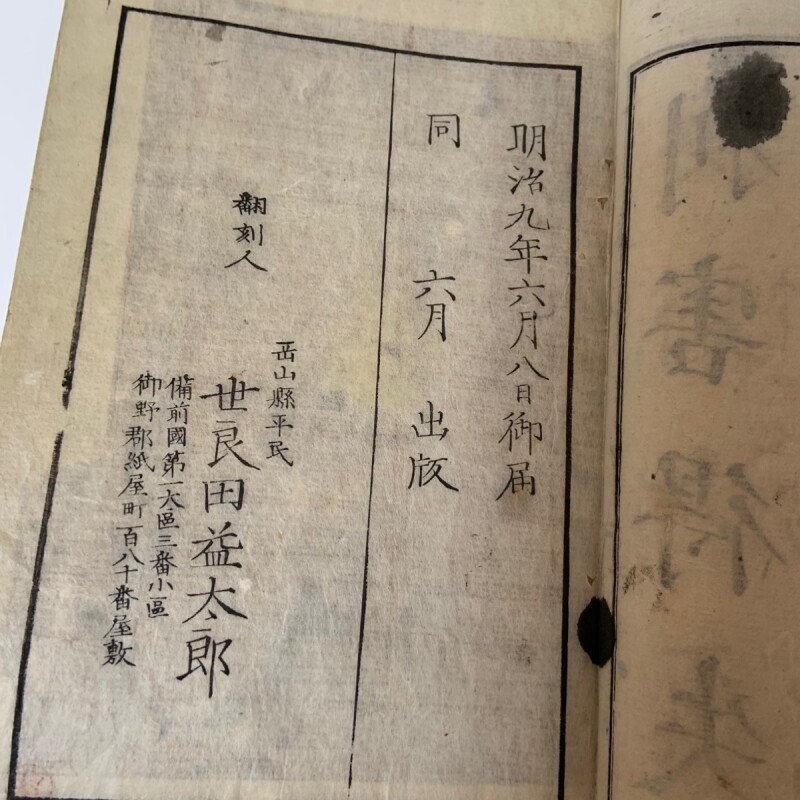 明治九年六月八日御届
同 六月 出版
翻刻人
岡山縣平民
世良田益太郎
備前國第一大區三番小區
御野郡紙屋町百八十番屋敷
利害得失